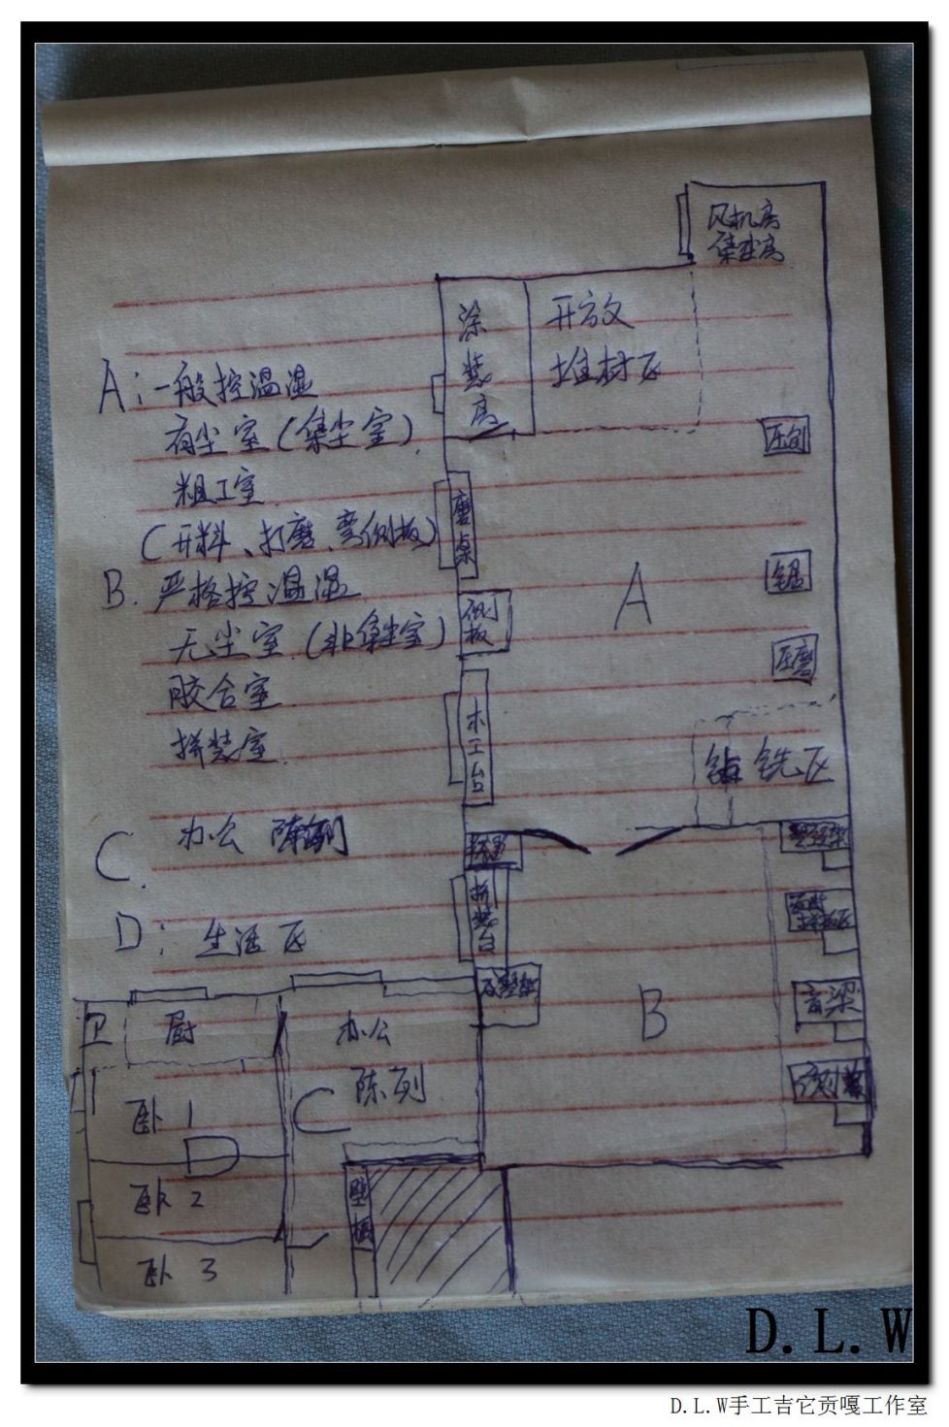 风机房
集尘房
涂装房
开放
堆材区
A：一般控温湿
有尘室（集尘室）
粗工室
（开料、打磨、弯侧板）
B. 严格控温湿
无尘室（非集尘室）
胶合室
拼装室
C. 办公 陈列
D：生活区
压刨
磨桌
侧板
A
锯
压磨
木工台
钻铣区
拼装台
B
音梁
卫
厨
办公
陈列
C
卧1
D
卧2
卧3
D.L.W
D.L.W手工吉它贡嘎工作室